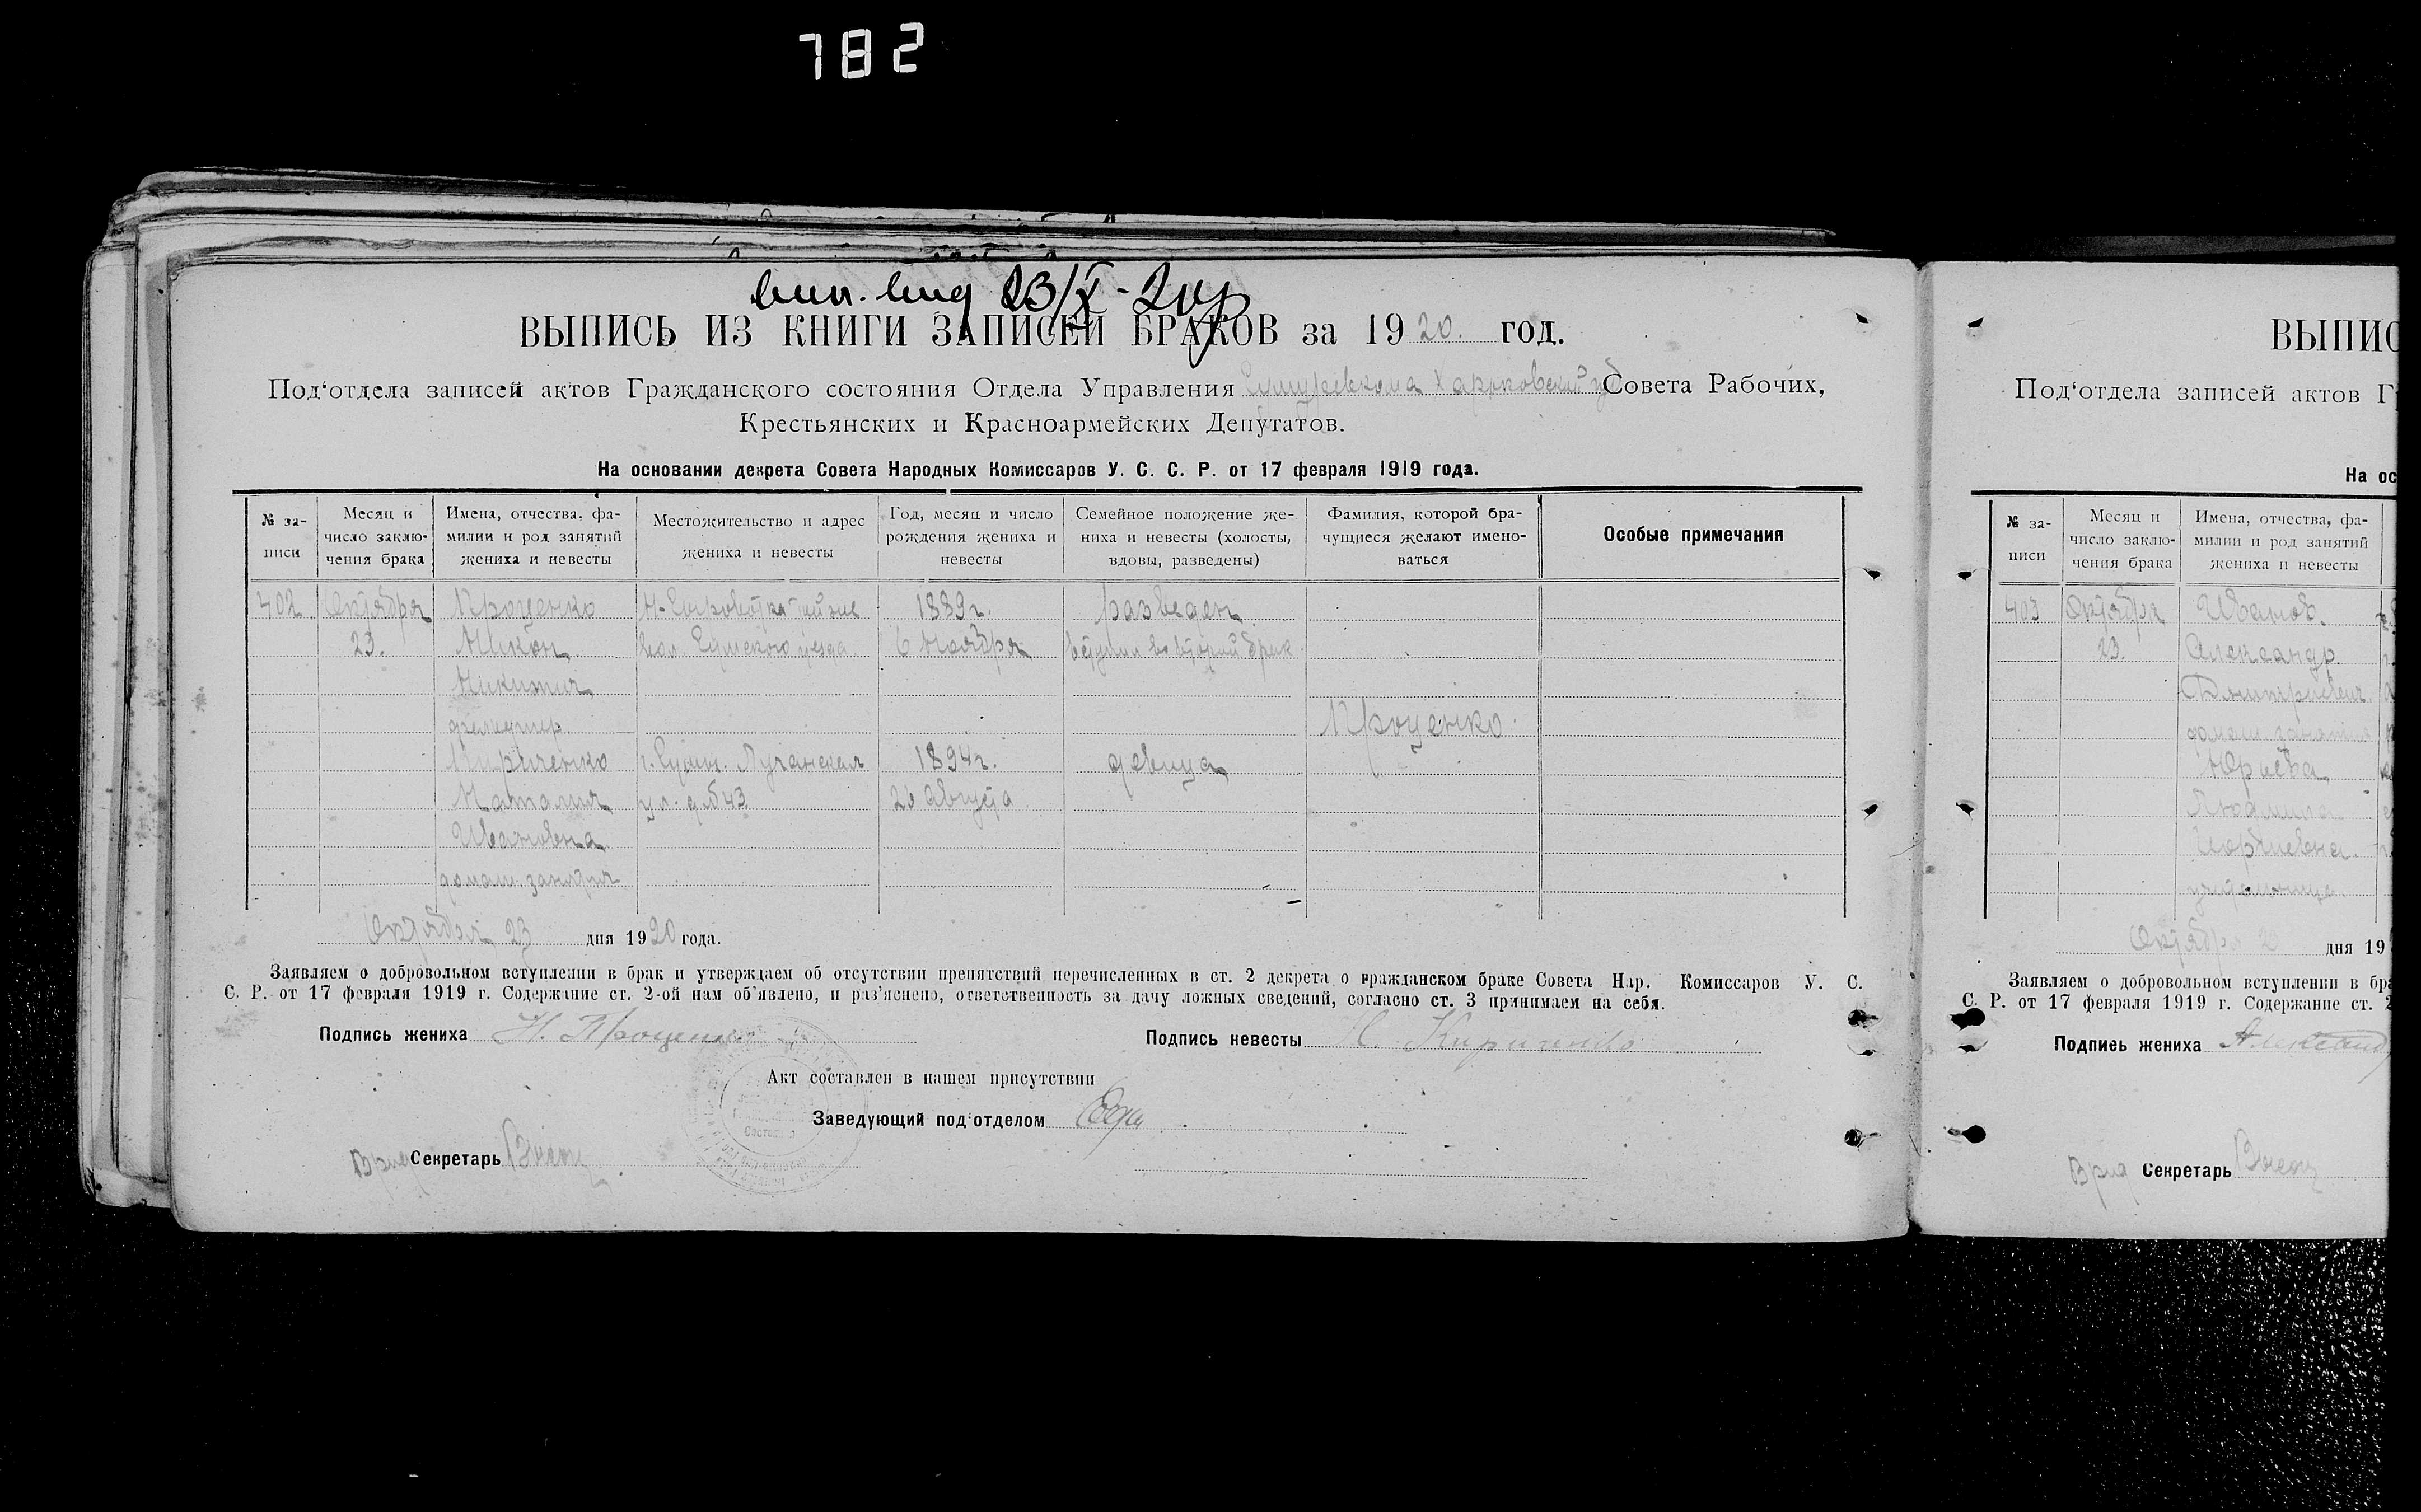 782
вып. выд 23/X-20 г
ВЫПИСЬ ИЗ КНИГИ ЗАПИСЕЙ БРАКОВ за 1920. год.
Под‘отдела записей актов Гражданского состояния Отдела Управления Харьковской Совета Рабочих,
Крестьянских и Красноармейских Депутатов.
На основании декрета Совета Народных Комиссаров У. С. С. Р. от 17 февраля 1919 года.
№ за- Месяц и Имена, отчества, фа- Местожительство и адрес Год, месяц и число Семейное положение же- Фамилия, которой бра- Особые примечания
писи число заклю- милии и род занятий жениха и невесты рождения жениха и ниха и невесты (холосты, чущиеся желают имено-
чения брака жениха и невесты невесты вдовы, разведены) ваться
402 Октября Проценко Н-Сыроватка 1889 г. разведен
23. Никон вол. Сумского уезда 6 Ноября вступил во второй брак
Никитич
фельдшер. Проценко
Кириченко г. Сумы. Луганская 1894 г. девица
Наталия ул. д. № 43 26 Августа
Ивановна
домаш. занятия
Октября 23 дня 1920 года.
Заявляем о добровольном вступлении в брак и утверждаем об отсутствии препятствий перечисленных в ст. 2 декрета о гражданском браке Совета Нар. Комиссаров У. С.
С. Р. от 17 февраля 1919 г. Содержание ст. 2-ой нам об‘явлено, и раз‘яснено, ответственность за дачу ложных сведений, согласно ст. 3 принимаем на себя.
Подпись жениха Н. Проценко Подпись невесты Н. Кириченко
Акт составлен в нашем присутствии
Заведующий под‘отделом
Врид Секретарь
ВЫПИС
Под‘отдела записей актов Г
На ос
№ за- Месяц и Имена, отчества, фа-
писи число заклю- милии и род занятий
чения брака жениха и невесты
403 Октября Иванов.
23. Александр
Дмитриевич
домаш. занятия
Юрьева
Людмила
Георгиевна.
учительница.
Октября 2 дня 19
Заявляем о добровольном вступлении в бра
С. Р. от 17 февраля 1919 г. Содержание ст. 2
Подпись жениха Александ
Врид Секретарь